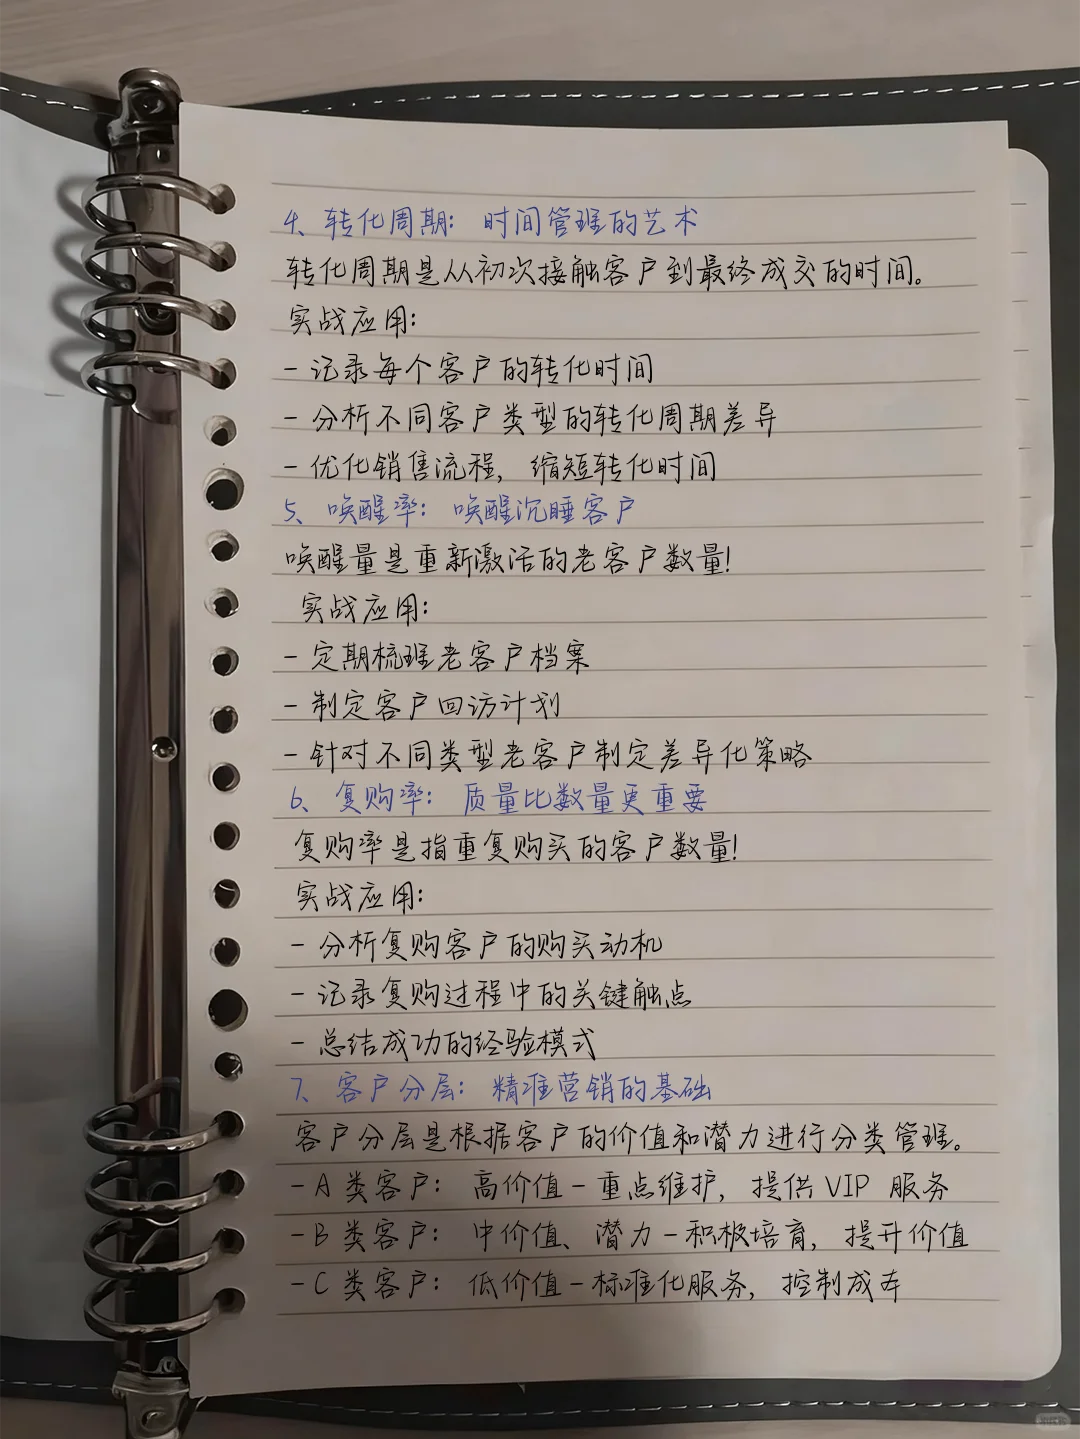 4、转化周期：时间管理的艺术
转化周期是从初次接触客户到最终成交的时间。
实战应用：
- 记录每个客户的转化时间
- 分析不同客户类型的转化周期差异
- 优化销售流程，缩短转化时间
5、唤醒率：唤醒沉睡客户
唤醒量是重新激活的老客户数量！
实战应用：
- 定期梳理老客户档案
- 制定客户回访计划
- 针对不同类型老客户制定差异化策略
6、复购率：质量比数量更重要
复购率是指重复购买的客户数量！
实战应用：
- 分析复购客户的购买动机
- 记录复购过程中的关键触点
- 总结成功的经验模式
7、客户分层：精准营销的基础
客户分层是根据客户的价值和潜力进行分类管理。
- A 类客户：高价值 - 重点维护，提供 VIP 服务
- B 类客户：中价值、潜力 - 积极培育，提升价值
- C 类客户：低价值 - 标准化服务，控制成本